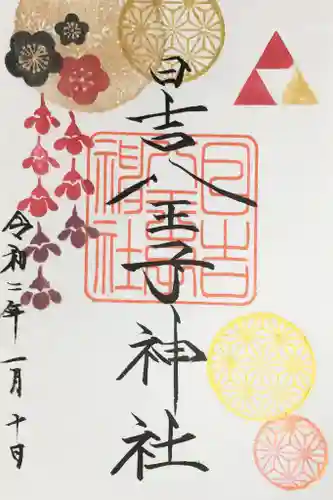 日吉八王子神社
令和二年
一月十日
日吉八王子神社